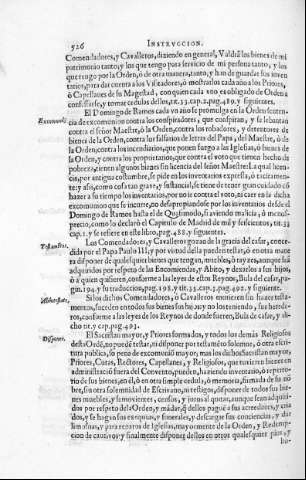 526 INSTRUCCION.
Comendadores, y Cavalleros, diziendo en general, Valdrà los bienes de mi
patrimonio tanto, y los que tengo para servicio de mi persona tanto, y los
que tengo por la Orden, ò de otra manera, tanto, y han de guardar sus inven
tarios, para dar cuenta à los Visitadores, ò mostrarlos cada año à los Priores,
ò Capellanes de su Magestad, con quien cada uno es obligado de Orden à
confessarse, y tomar cedulas dellos, tit. 33. cap. 2. pag. 489. y siguientes.
El Domingo de Ramos cada vn año se promulga en la Orden senten-
cia de excomunion contra los conspiradores, que conspiran, y se
contra el señor Maestre, ò la Orden, contra los robadores, y detentores de
bienes de la Orden, contra los falsarios de letras del Papa, del Maestre, ò de
la Orden, contra los incendiarios, que ponen fuego a las Iglesias, ò bienes de
la Orden, y contra los proprietarios, que contra el voto que tienen hecho de
pobreza, tienen algunos bienes sin licencia del señor Maestre. La qual licen-
cia, por antigua costumbre, se pide en los inventarios expressa, ò tacitamen-
te: y assi, como es cosa tan grave, y substancial, se tiene de tener gran cuidado cõ
hazer a su tiempo los inventarios, por no ir contra el voto, ni caer en la dicha
excomunion que se incurre, no desapropiandose por los inventarios desde el
Domingo de Ramos hasta el de Quasimodo, si aviendo malicia, ò menos-
precio, como lo declarò el Capitulo de Madrid de mil y seiscientos, tit. 33
cap. 1. y se refiere en este libro, pag. 488. y siguientes.
Los Comendadores, y Cavalleros gozan de la gracia del testar, conce-
dida por el Papa Paulo III. y por virtud della pueden testar, ò en otra mane
ra disponer de qualesquier bienes que tengan, muebles, ò rayzes, aunque seã
adquiridos por respeto de las Encomiendas, y Abito, y dexarlos a sus hijos,
ò a quien quisieren, conforme a las leyes de estos Reynos, Bula del cabo, pa-
gin. 194. y su traduccion, pag. 198. y tit. 35. cap. 3. pag. 492. y siguiente.
Si los dichos Comendadores, ò Cavalleros murieren sin hazer testa-
mentos, suceden en todos sus bienes sus hijos, y no los teniendo, sus herede-
ros, conforme a las leyes de los Reynos de donde fueren, Bula de casar, y di-
cho tit. y cap. pag. 493.
El Sacristan mayor, y Priores formados, y todos los demàs Religiosos
desta Ordẽ, no puedẽ testar, ni disponer por testamẽto solemne, ò otra escri
tura publica, so pena de excomuniõ mayor, mas los dichos Sacristan mayor,
Priores, Curas, Rectores, Capellanes, y Religiosos, que tuvieren bienes en
administraciõ fuera del Convento, pueden, haziendo inventariò, ò reperto-
rio de sus bienes, en èl, ò en otra simple cedula, ò memoria, firmada de su nõ
bre, sin otra solemnidad de Escrivano, ni testigos, disponer de todos sus bie
nes muebles, y semovientes, censos, y juros al quitar, aunque sean adquiri-
dos por respeto de la Orden, y mãdar, q̃ dellos paguẽ a sus acreedores, y cria
dos, y se hagan sus exequias, y funerales, y descargar sus conciencias, y dar
limosnas, y para reparos de Iglesias, mayormente de la Orden, y Redemp-
cion de cautivos: y finalmente disponer dellos en otros qualesquier
Excomuniõ
Testamẽtos.
Abintestato.
Disponer.